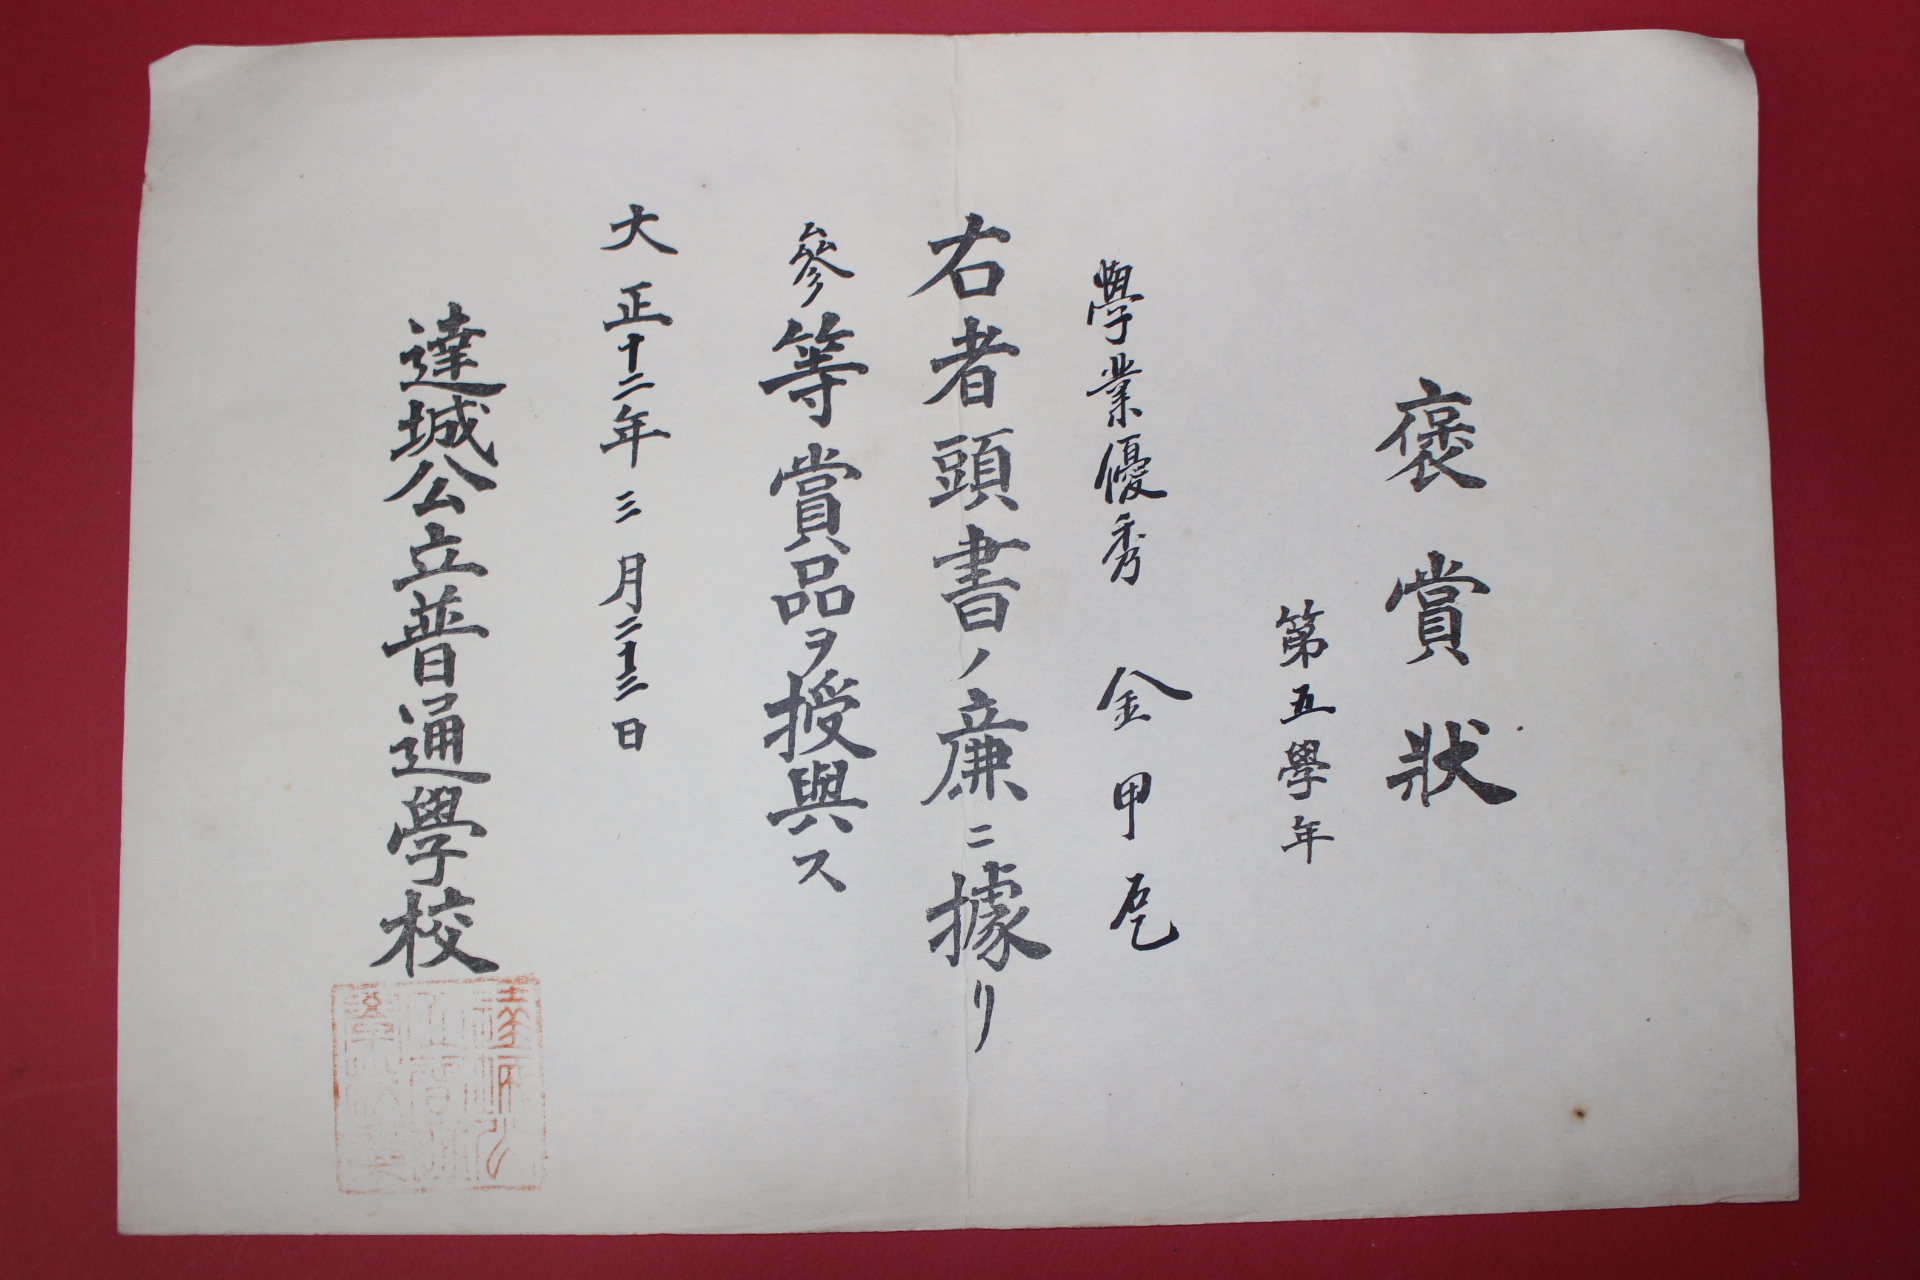 褒賞狀
第五學年
學業優秀 金甲乭
右者頭書ノ廉ニ據リ
參等賞品ヲ授與ス
大正十二年三月二十三日
達城公立普通學校